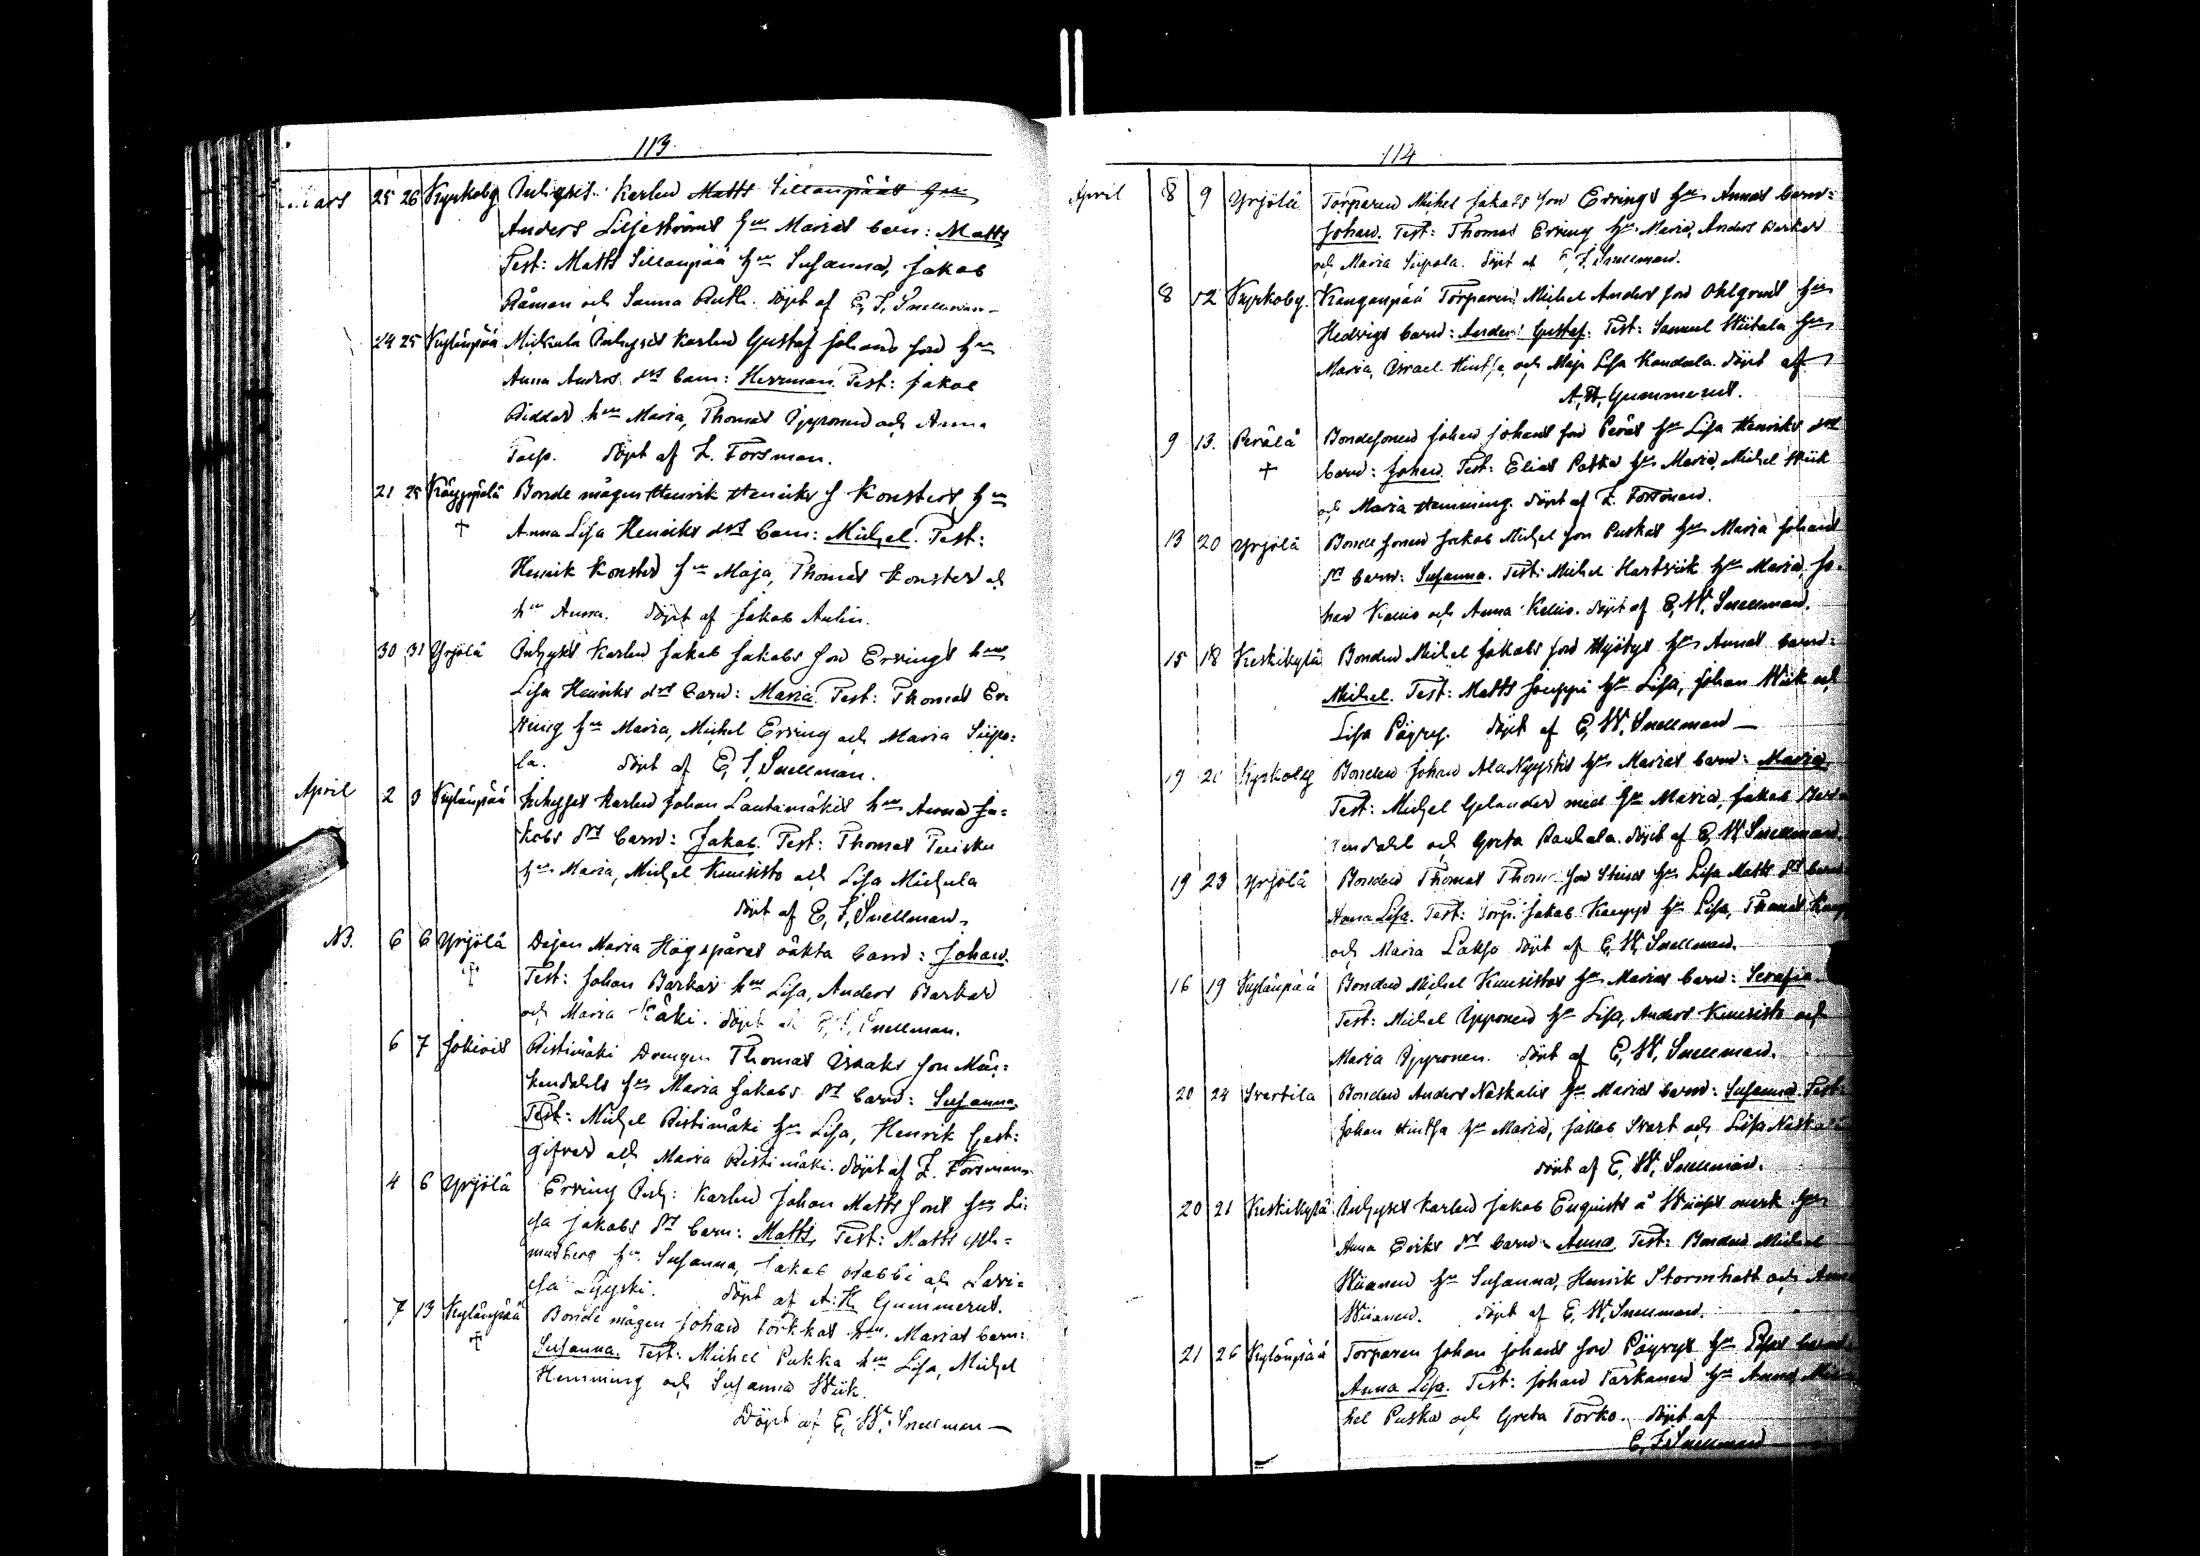 113.
Mars 25 26 Kyrkoby Inhyses Karlen Matts Sillanpääs hu
Anders Liljeströms hu Marias barn: Matts
Test: Matts Sillanpää hu Susanna, Jakob
Råman och Sanna Ruth. döpt af E, J, Snellman
24 25 Kylänpää Mickula Inhyses Karlen Gustaf Johans son hu
Anna Anders drs barn: Herrman. Test: Jakob
Riddar hu Maria, Thomas Ypponen och Anna
döpt af Z. Forsman.
21 25 Käyppälä Bonde mågen Henrik Henriks s Konsters hu
† Anna Lisa Henriks drs barn: Michel. Test:
Henrik Konster hu Maja, Thomas Konster och
hu Anna. döpt af Jakob Aulin.
30 31 Yrjölä Inhyses Karlen Jakob Jakobs son Ervings hus
Lisa Henriks drs barn: Maria. Test: Thomas Er-
ving hu Maria, Michel Erving och Maria Siipo-
la. döpt af E, J, Snellman.
April 2 3 Kylänpää Inhyses Karlen Johan Lautamäkis hus Anna Ja-
kobs drs barn: Jakob. Test: Thomas
hu Maria, Michel Kuusisto och Lisa Mickula
döpt af E, J, Snellman,
NB. 6 6 Yrjölä Dejan Maria Högspåras oäkta barn: Johan.
† Test: Johan Barkar hu Lisa, Anders Barkar
och Maria döpt af E, J, Snellman.
6 7 Jokivis Ristimäki Drengen Thomas Isaaks son Mån-
kendahls hus Maria Jakobs drs barn: Susanna,
Test: Michel Ristimäki hu Lisa, Henrik Gest-
gifvar och Maria Ristimäki. döpt af Z. Forsman
4 6 Yrjölä Erving Inh: Karlen Johan Matts sons hus Li-
sa Jakobs drs barn: Matts, Test: Matts
hu Susanna, Jakob Rabbi och Lovi-
sa Lyyski. döpt af A: H, Gummerus.
7 13 Kylänpää Bonde mågen Johan Torkkos hu Marias barn:
† Susanna. Test: Michel Pukka hu Lisa, Michel
Hemming och Susanna Wiik.
Döpt af E, W, Snellman
114
April 8 9 Yrjölä Torparen Michel Jakobs son Ervings hus Annas barn:
Johan. Test: Thomas Erving hu Maria, Anders Barkar
och Maria Siipola. döpt af E, J, Snellman.
8 12 Kyrkoby. Kanganpää Torparen Michel Anders son Ohlgrens hus
Hedvigs barn: Anders Gustaf. Test: Samuel Wiitala hu
Maria, Israel Hintsa, och Maja Lisa Kandala. döpt af
A, H, Gummerus.
9 13. Perälä Bondesonen Johan Johans son Peräs hus Lisa Henriks drs
† barn: Johan. Test: Elias Patka hu Maria, Michel Wiik
och Maria Hemming. döpt af Z. Forsman.
13 20 Yrjölä Bonde sonen Jakob Michels son Puskas hus Maria Johans
drs barn: Susanna. Test: Michel Hartvik hu Maria, Jo-
han Kallio och Anna Kallio. döpt af E, W, Snellman.
15 18 Keskikylä Bonden Michel Jakobs son Hyötys hus Annas barn:
Michel. Test: Matts Jouppi hu Lisa, Johan Wiik och
Lisa Pöyry. döpt af E, W, Snellman
19 21 Kyrkoby Bonden Johan Ala Nyystis hus Marias barn: Maria
Test: Michel Gelander med hu Maria, Jakob
och Greta Rauhala. döpt af E, W, Snellman.
19 23 Yrjölä Bonden Thomas Thoms son Stenes hus Lisa Matts drs barn
Anna Lisa. Test: Torp. Jakob Kaupps hu Lisa, Thomas
och Maria Laksо döpt af E, W, Snellman.
16 19 Kylänpää Bonden Michel Kuusistos hus Marias barn: Serafia.
Test: Michel Ypponen hu Lisa, Anders Kuusisto och
Maria Ypponen. döpt af E, W, Snellman.
20 24 Svartila Bonden Anders Naskalis hus Marias barn: Susanna. Test:
Johan Hintsa hu Maria, Jakob Svart och Lisa Naskali
döpt af E, W, Snellman.
20 21 Keskikylä Inhyses Karlen Jakob Enqvists å Wiiaps mark hus
Anna Eriks drs barn: Anna. Test: Bonden Michel
Wiianen hu Susanna, Henrik Stormhatt och Anna
Wiianen. döpt af E, W, Snellman.
21 26 Kylänpää Torparen Johan Johans son Pöyrys hus Lisas barn:
Anna Lisa. Test: Johan Tarkanen hu Anna, Mi-
hel Puska och Greta Torko. döpt af
E, J Snellman